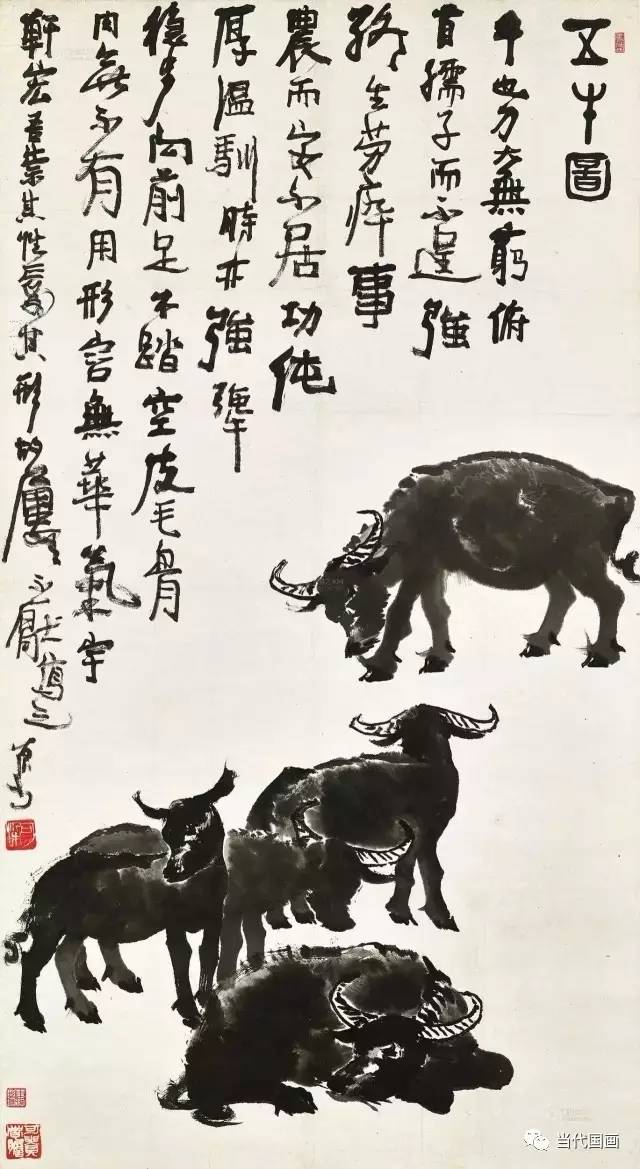 五牛圖
牛也力大無窮俯
首孺子而不逞強
終生勞瘁事
農而安不居功純
厚溫馴時亦強犟
穩步向前足不踏空皮毛骨
肉無不有用形容無華氣宇
軒宏吾崇其性愛其形故屢屢不厭寫之
当代国画